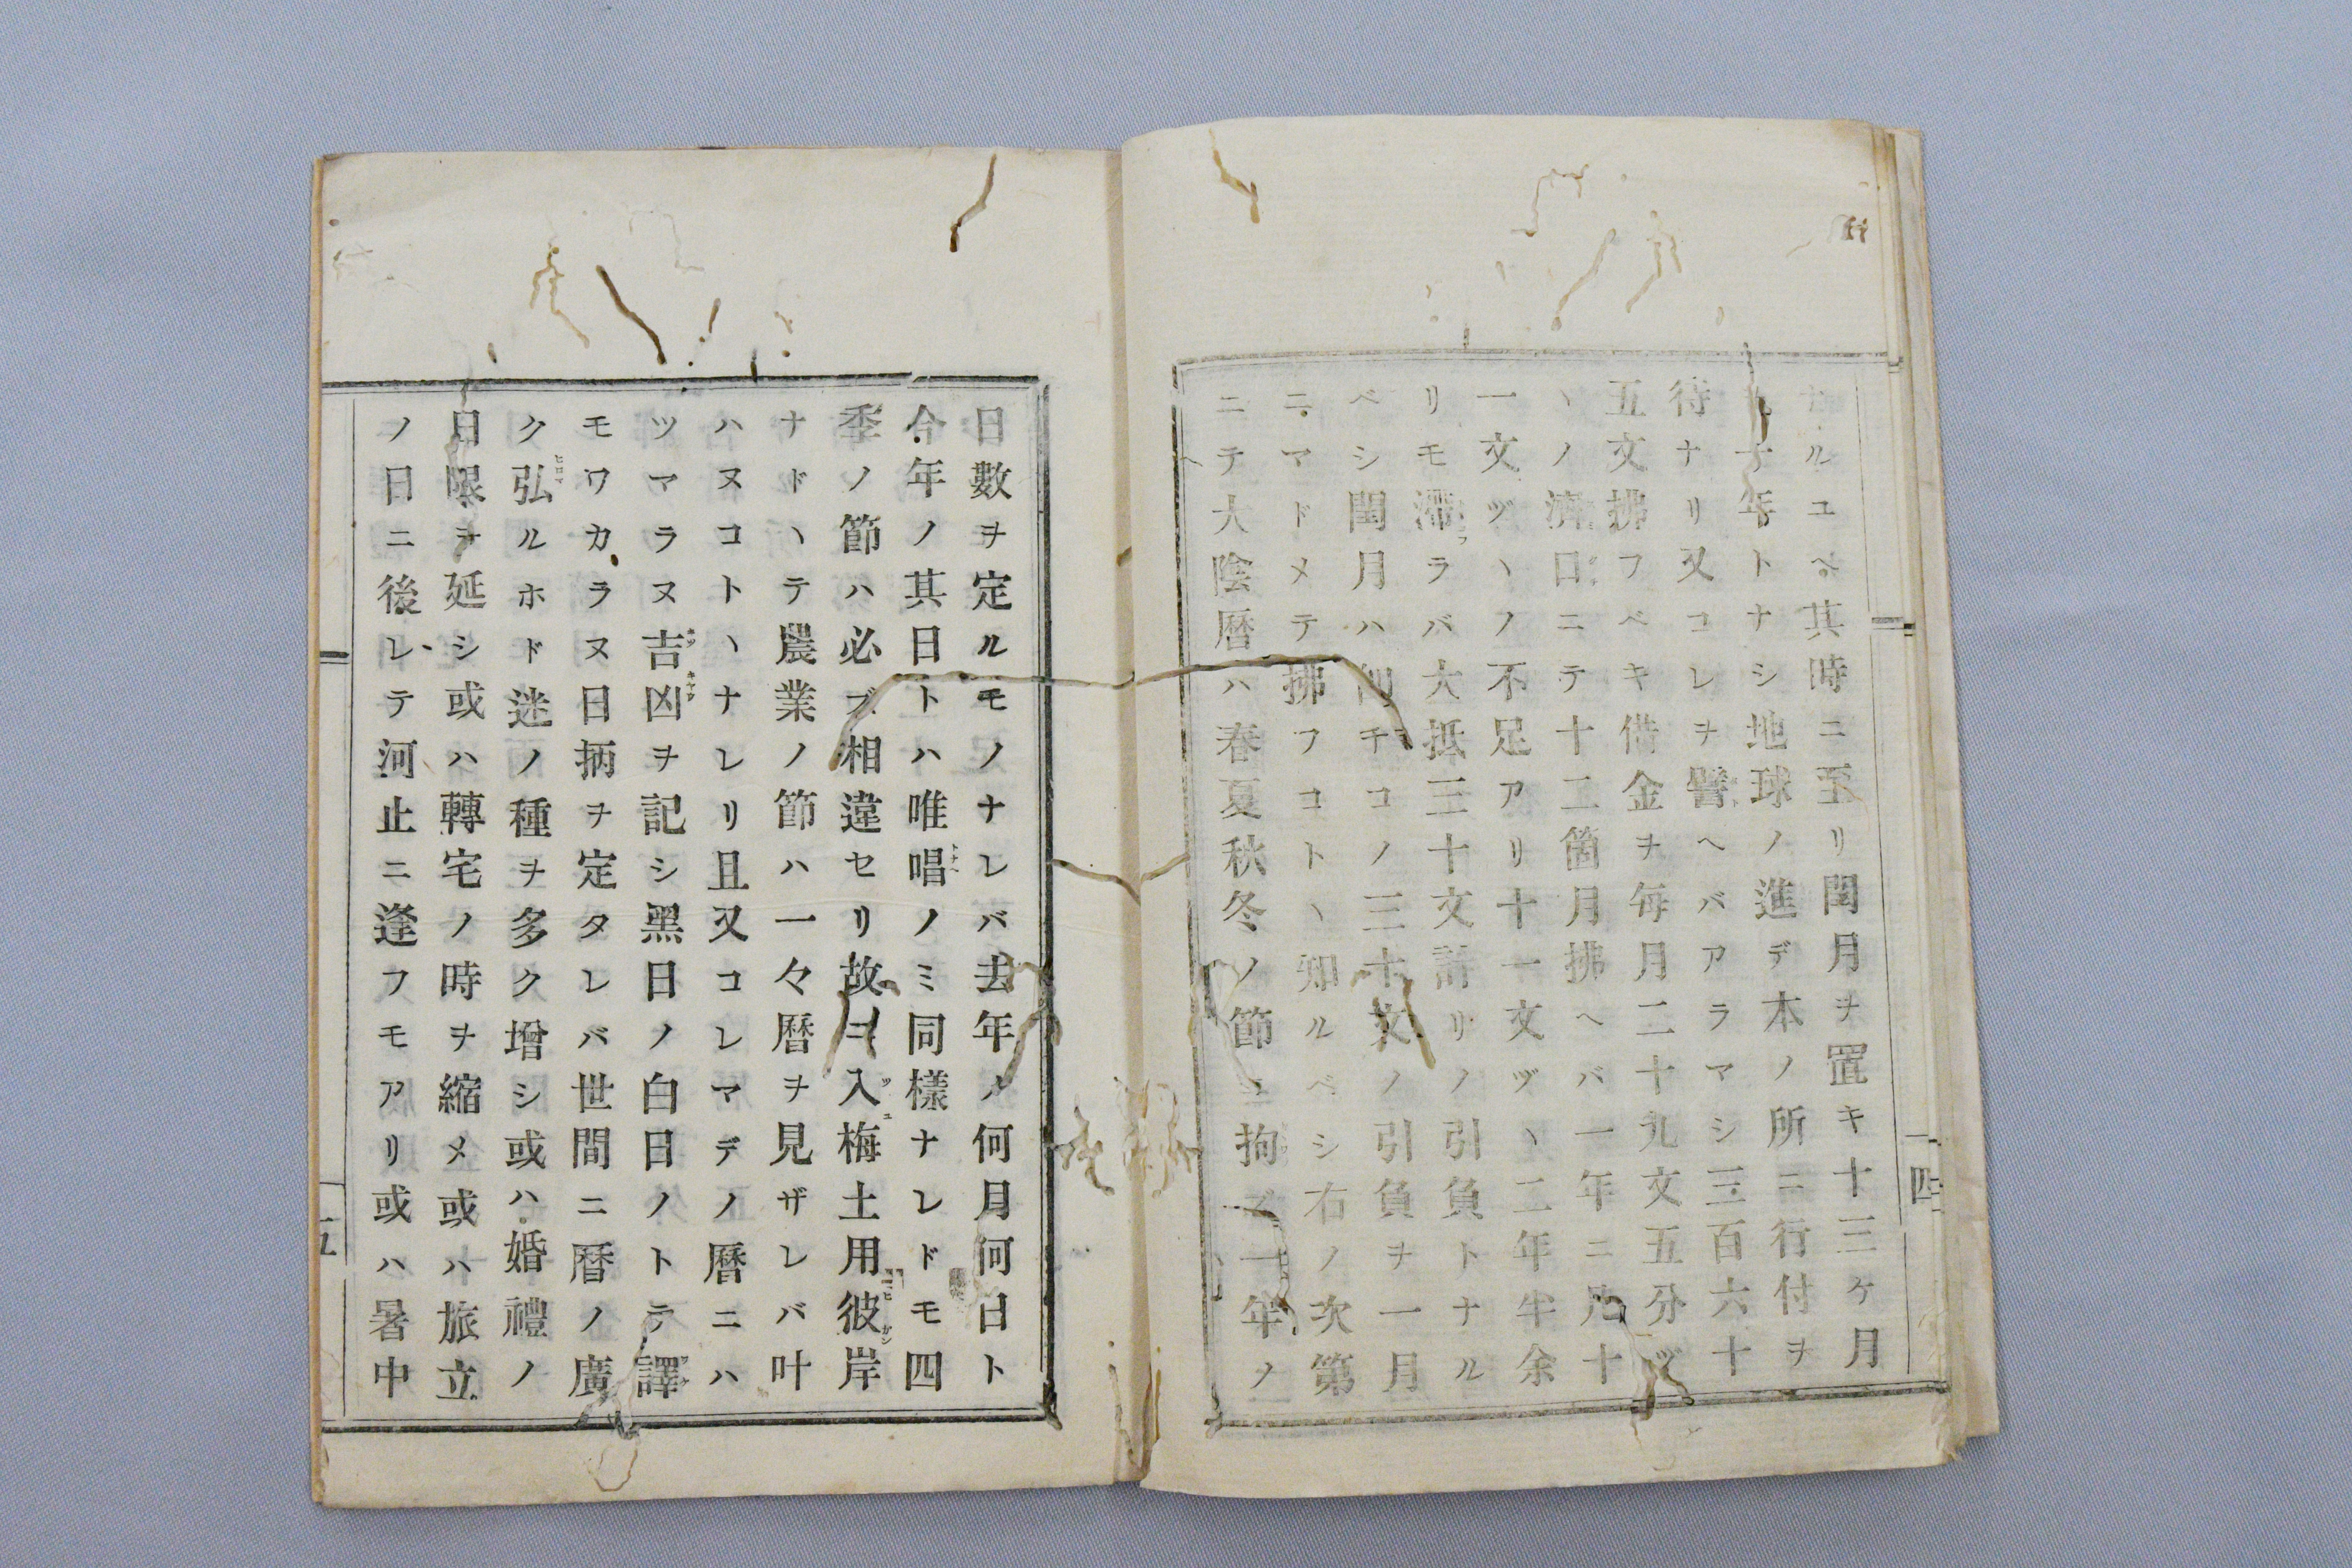 ナルユヘ其時ニ至リ閏月ヲ置キ十三ケ月
ノ一年トナシ地球ノ進デ本ノ所ニ行付ヲ
待ナリ又コレヲ譬ヘバアラマシ三百六十
五文拂フベキ借金ヲ毎月二十九文五分ヅ
ヽノ濟口ニテ十二箇月拂ヘバ一年ニ凡十
一文ヅヽノ不足アリ十一文ヅヽ二年半余
リモ滯ラバ大抵三十文計リノ引負トナル
ベシ閏月ハ即チコノ三十文ノ引負ヲ一月
ニマドメテ拂フコトヽ知ルベシ右ノ次第
ニテ大陰暦ハ春夏秋冬ノ節ニ拘ラズ一年ノ
四
日數ヲ定ルモノナレバ去年ノ何月何日ト
今年ノ其日トハ唯唱ノミ同樣ナレドモ四
季ノ節ハ必ズ相違セリ故ニ入梅土用彼岸
ナドヽテ農業ノ節ハ一々暦ヲ見ザレバ叶
ハヌコトヽナレリ且又コレマデノ暦ニハ
ツマラヌ吉凶ヲ記シ黑日ノ白日ノトテ譯
モワカラヌ日柄ヲ定タレバ世間ニ暦ノ廣
ク弘ルホド迷ノ種ヲ多ク增シ或ハ婚禮ノ
日限ヲ延シ或ハ轉宅ノ時ヲ縮メ或ハ旅立
ノ日ニ後レテ河止ニ逢フモアリ或ハ暑中
五